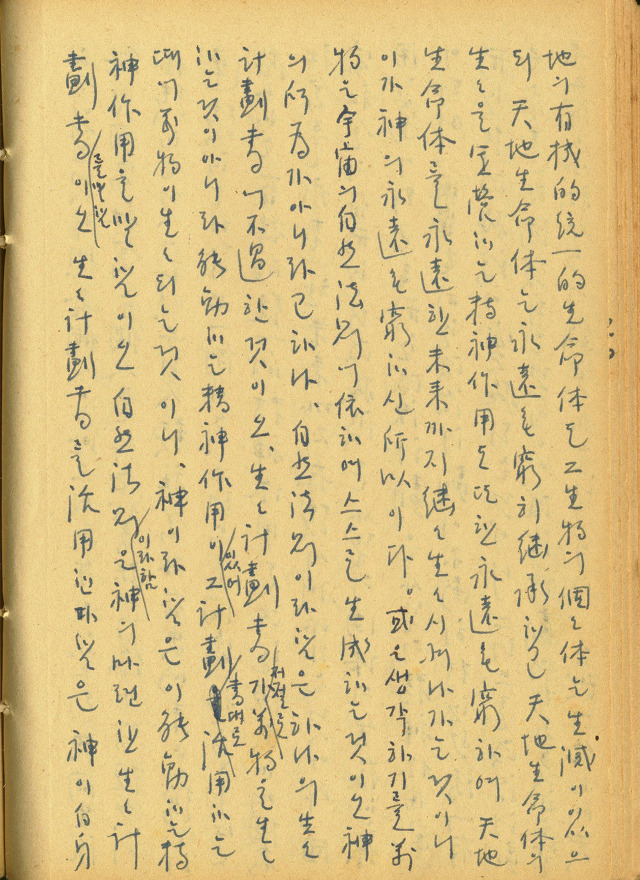 地의 有機的 統一的 生命体는 그 生物의 個個体는 生滅이 있으
되 天地生命体는 永遠無窮히 継承하고 天地生命体의
生生을 運營하는 精神作用도 또한 永遠無窮하여 天地
生命体를 永遠한 未来까지 継継生生시켜나가는 것이니
이가 神의 永遠無窮하신 所以이다。 或은 생각하기를 萬
物은 宇宙의 自然法則에 依하여 스스로 生成하는 것이오 神
의 所為가 아니라고 하나、 自然法則이라 함은 하나의 生生
計劃書에 不過한 것이오、 生生計劃書가 저절로 萬物을 生生
하는 것이 아니라 能動하는 精神作用이 있어 그 計劃書대로 活用하는
때에 萬物이 生生되는 것이니、 神이라 함은 이 能動하는 精
神作用을 말함이오 自然法則이라 함은 神의 마련한 生生計
劃書를 말함이오 生生計劃書를 活用한다 함은 神이 自身